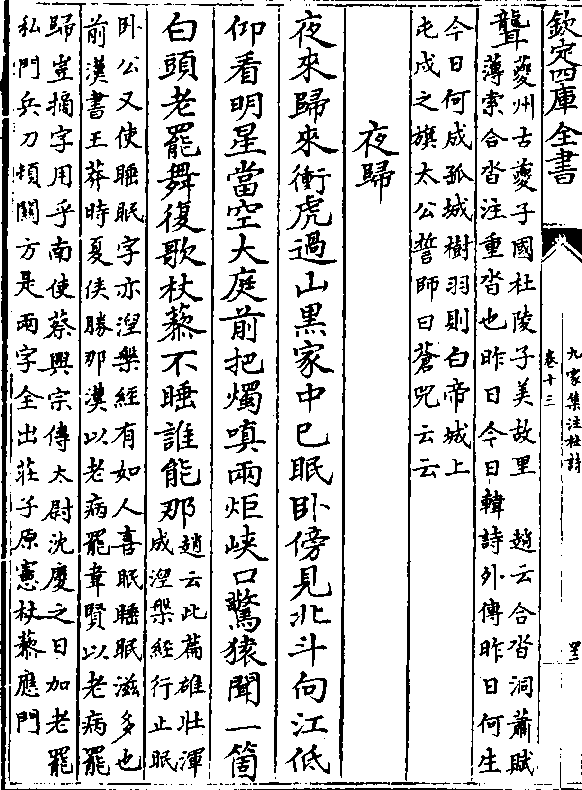 欽定四庫全書
九家集注杜詩
卷十三
聾
夔州古夔子國杜陵子美故里　趙云合沓洞蕭賦
薄索合沓注重沓也昨日今日韓詩外傳昨日何生
今日何成孤城樹羽則白帝城上
屯戍之旗太公誓師曰蒼兕云云
夜歸
夜來歸來衝虎過山黒家中已眠卧傍見北斗向江低
仰看明星當空大庭前把燭嗔兩炬峽口驚猿聞一箇
白頭老罷舞復歌杖藜不睡誰能那
趙云此篇雄壯渾
成涅槃經行止眠
卧公又使睡眠字亦涅槃經有如人喜眠睡眠滋多也
前漢書王莽時夏侯勝那漢以老病罷韋賢以老病罷
歸豈摘字用乎南使蔡興宗傳太尉沈慶之曰加老罷
私門兵刀頓闕方是兩字全出莊子原憲杖藜應門